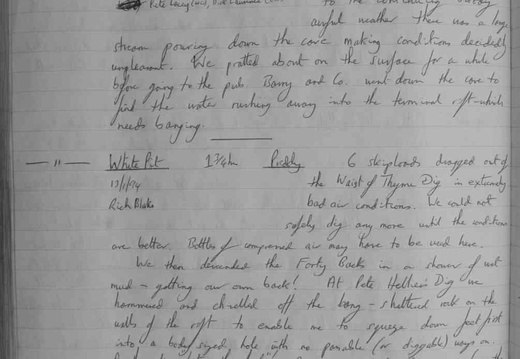 Pete Hellier (
to the continuing
awful weather there was a large
stream pouring down the cave making conditions decidedly
unpleasant. We pratted about on the surface for a while
before going to the pub. Barry and Co. went down the cave to
find the water rushing away into the terminal rift - which
needs banging.
— " — White Pit 1¾hr Priddy 6 skiploads dragged out of
13/1/94 the Waist of Thyme Dig in extremely
Rich Blake bad air conditions. We could not
safely dig any more until the conditions
are better. Bottles of compressed air may have to be used here.
We then descended the Forty Backs in a shower of wet
mud - getting our own back! At Pete Hellier's Dig we
hammered and chiselled off the bang - shattered rock on the
walls of the rift to enable me to squeeze down feet first
into a body sized hole with no passable (or diggable) ways on.